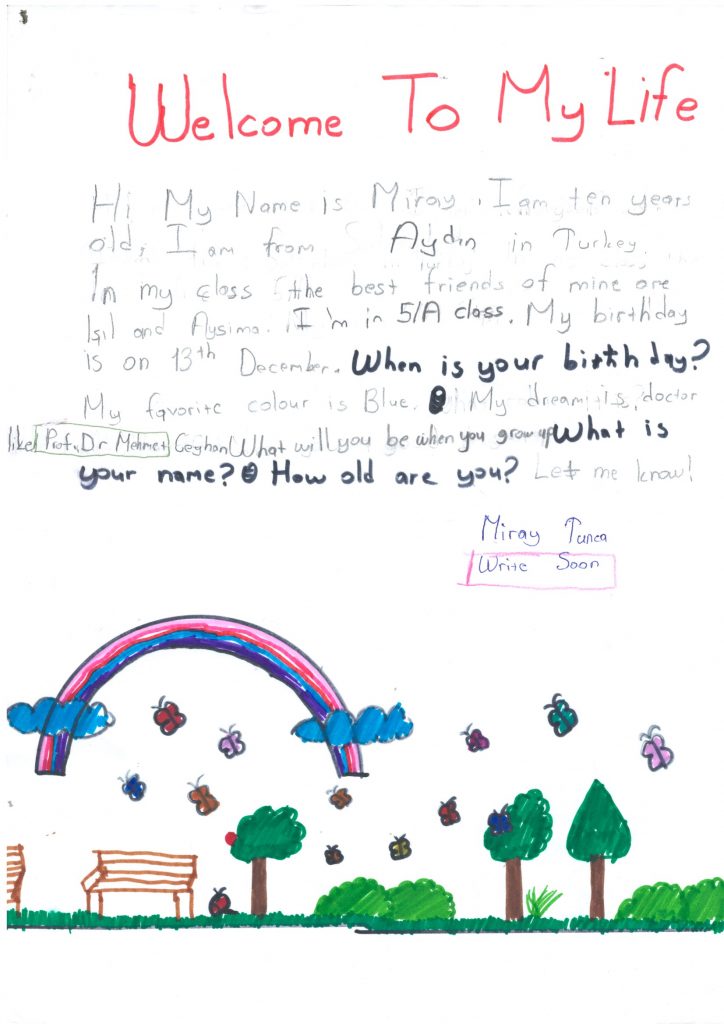 Welcome To My Life
Hi My Name is Miray. I am ten years
old, I am from Aydın in Turkey.
In my class the best friends of mine are
Işıl and Aysima. I'm in 5/A class. My birthday
is on 13th December. When is your birth day?
My favorite colour is Blue. My dream is doctor
like Prof. Dr Mehmet Ceyhan What will you be when you grow up What is
your name? How old are you? Let me know!
Miray Tunca
Write Soon